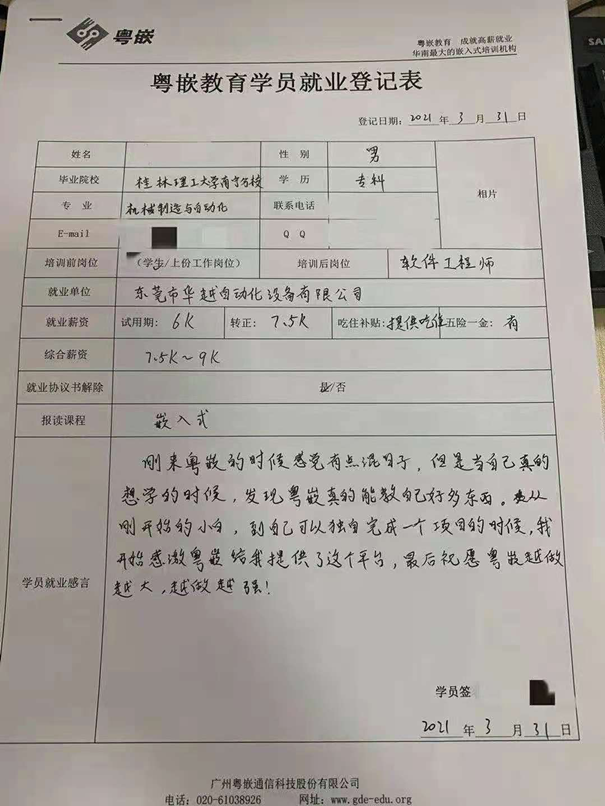 粤嵌
粤嵌教育 成就高薪就业
华南最大的嵌入式培训机构
粤嵌教育学员就业登记表
登记日期: 2021 年 3 月 31 日
姓名 性 别 男
毕业院校 桂林理工大学南宁分校 学 历 专科 相片
专 业 机械制造与自动化 联系电话
E-mail Q Q
培训前岗位 (学生/上份工作岗位) 培训后岗位 软件工程师
就业单位 东莞市华越自动化设备有限公司
就业薪资 试用期: 6K 转正: 7.5K 吃住补贴: 提供吃住 五险一金: 有
综合薪资 7.5K~9K
就业协议书解除 是/否
报读课程 嵌入式
刚来粤嵌的时候感觉有点混日子,但是当自己真的
想学的时候,发现粤嵌真的能教自己好多东西。从
刚开始的小白,到自己可以独自完成一个项目的时候,我
开始感激粤嵌给我提供了这个平台,最后祝愿粤嵌越做
学员就业感言 越大,越做越强!
学员签
2021 年 3 月 31 日
广州粤嵌通信科技股份有限公司
电话: 020-61038926 网址: www.gde-edu.org